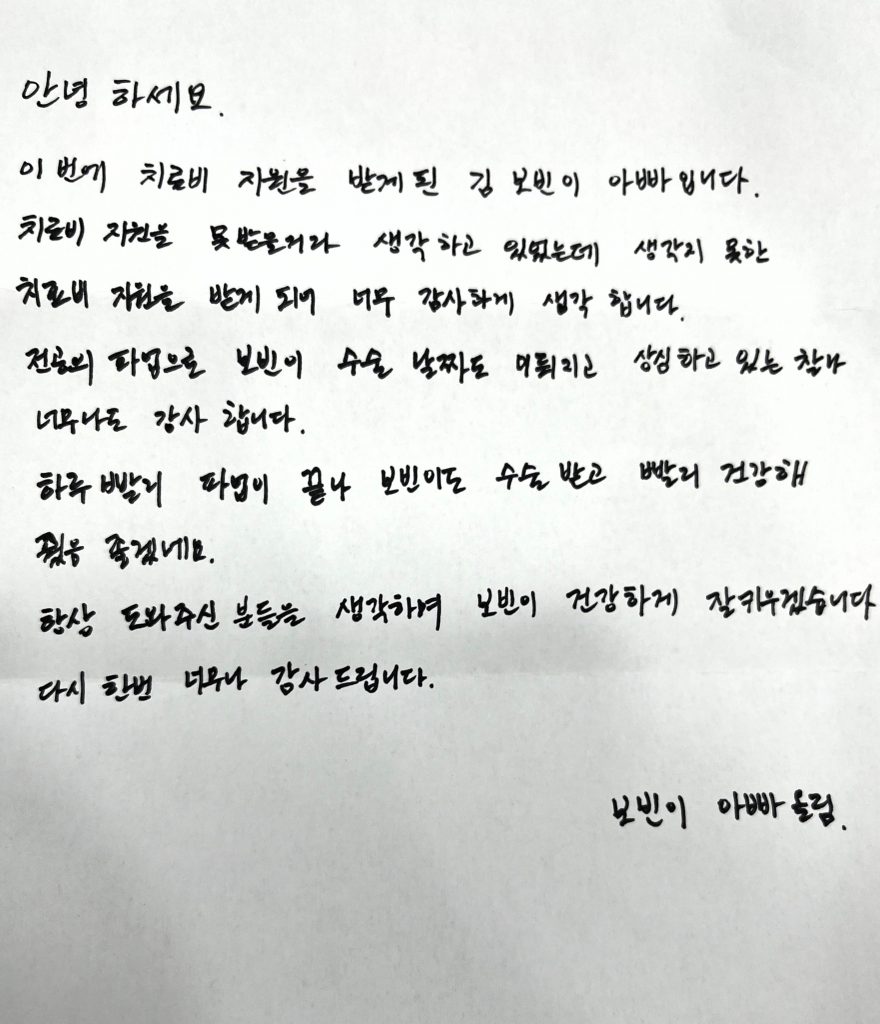 안녕 하세요.
이 번에 치료비 지원을 받게 된 김 보빈이 아빠입니다.
치료비 지원을 못 받을거라 생각 하고 있었는데 생각지 못한
치료비 지원을 받게 되어 너무 감사하게 생각 합니다.
전공의 파업으로 보빈이 수술 날짜도 미뤄지고 상심 하고 있는 찰나
너무나도 감사 합니다.
하루 빨리 파업이 끝나 보빈이도 수술 받고 빨리 건강해
좋겠네요.
항상 도와주신 분들을 생각하며 보빈이 건강하게 잘키우겠습니다
다시 한번 너무나 감사 드립니다.
보빈이 아빠 올림.